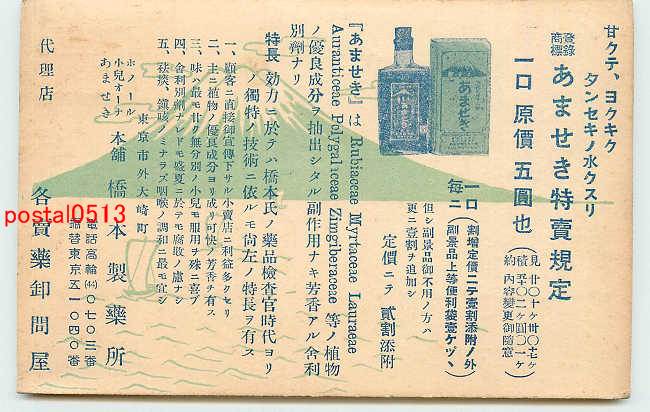 甘クテ、ヨクキク
タンセキノ水クスリ
登錄商標 あませき特賣規定
一口 原價 五圓也
一口 毎ニ
割増定價ニテ壹割添附ノ外
副景品上等便利袋壹ケヅヽ
但シ副景品御不用ノ方ハ
更ニ壹割ヲ追加シ
定價ニテ 貳割添附
あませき
『あませき』は Rubiaceae Myrtaceae Lauraceae
Auranticeae Polygaliceae Zimgiberaceae 等ノ植物
ノ優良成分ヲ抽出シタル副作用ナキ芳香アル舍利
別劑ナリ
特長 効力ニ於テハ橋本氏ノ藥品檢査官時代ヨリ
ノ獨特ノ技術ニ依ルモ尚左ノ特長ヲ有ス
一、顧客ニ直接御宣傳下サル小賣店ニ利益多クセリ
二、主ニ植物ノ優良成分ヨリ成リ可快ノ芳香ヲ有ス
三、味ハ最モ甘ク無分別ノ小兒モ服用ヲ殊ニ喜ブ
四、舍利別劑ナレドモ盛夏ニ於テモ腐敗ノ慮ナシ
五、袪痰、鎭咳ノミナラズ咽喉ノ調和ニ最モ宜シ
ホノール
小兒オーチ
あませき
本舗 橋本製藥所
東京市外大崎町
電話高輪(44)〇七〇三番
振替東京五一〇四〇番
代理店
各賣藥卸問屋
postal0513